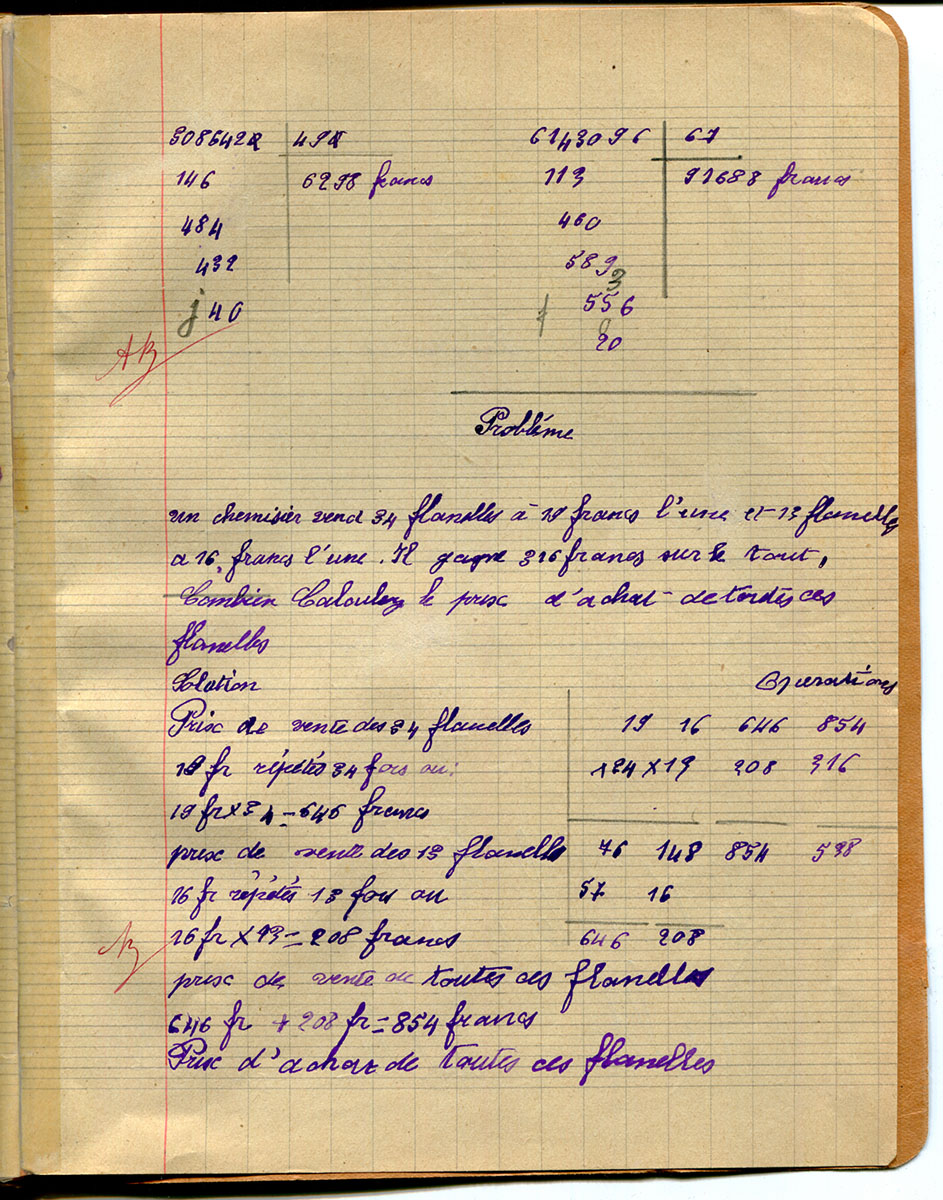 308642 49 6143096 67
146 6298 francs 113 91688 francs
484 460
432 589
40 556
20
Problème
un chemisier vend 34 flanelles à 19 francs l'une et 13 flanelles
a 16 francs l'une. Il gagne 316 francs sur le tout,
Combien Calculez le prix d'achat de toutes ces
flanelles
Slution Opurations
Prix de vente des 34 flanelles 19 16 646 854
19 fr répétés 34 fois ou: ×34 ×13 208 316
19 fr × 34 = 646 francs
prix de vente des 13 flanelles 76 148 854 538
16 fr répétés 13 fois ou 57 16
16 fr × 13 = 208 francs 646 208
prix de vente de toutes ces flanelles
646 fr + 208 fr = 854 francs
Prix d'achat de toutes ces flanelles